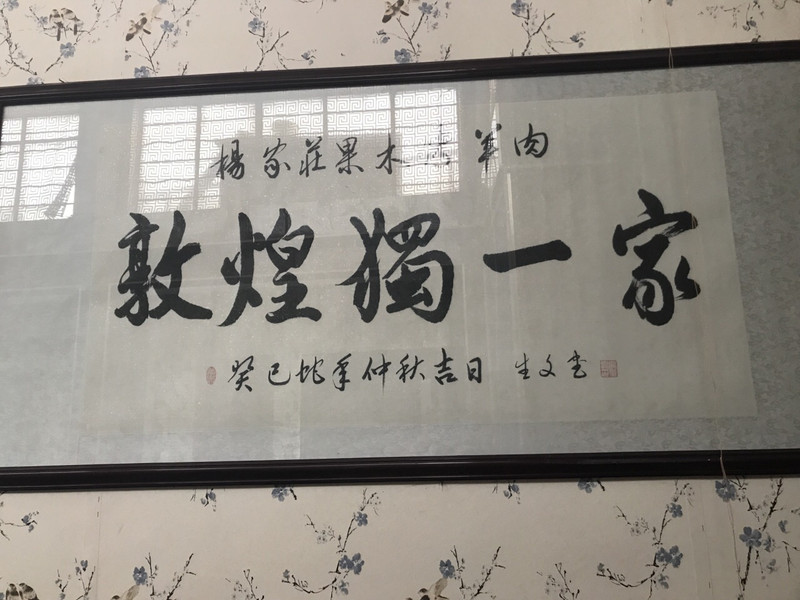 楊家莊果木 羊肉
敦煌獨一家
癸巳蛇年仲秋吉日 生文書